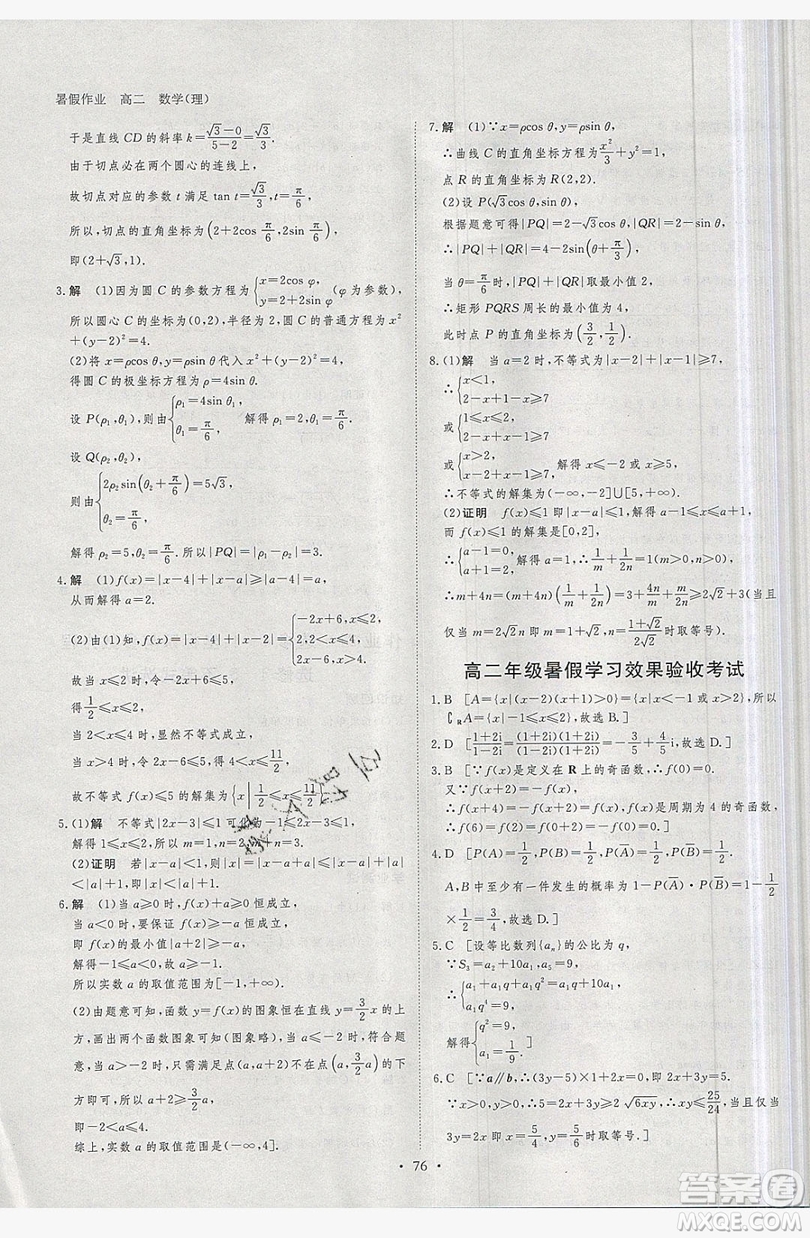 暑假作业 高二 数学(理)
于是直线 CD 的斜率 k=\frac{\sqrt{3}-0}{5-2}=\frac{\sqrt{3}}{3}.
由于切点必在两个圆心的连线上,
故切点对应的参数 t 满足 tan t=\frac{\sqrt{3}}{3}, t=\frac{π}{6},
所以,切点的直角坐标为(2+2cos \frac{π}{6},2sin \frac{π}{6}),
即(2+\sqrt{3},1).
3.解 (1)因为圆 C 的参数方程为{x=2cos φ, y=2+2sin φ (φ为参数),
所以圆心 C 的坐标为(0,2),半径为 2,圆 C 的普通方程为 x²
+(y-2)²=4.
(2)将 x=ρcos θ,y=ρsin θ 代入 x²+(y-2)²=4,
得圆 C 的极坐标方程为 ρ=4sin θ.
设 P(ρ₁,θ₁),则由{ρ₁=4sin θ₁, θ₁=\frac{π}{6}, 解得 ρ₁=2,θ₁=\frac{π}{6}.
设 Q(ρ₂,θ₂),
则由{2ρ₂sin(θ₂+\frac{π}{6})=5\sqrt{3}, θ₂=\frac{π}{6},
解得 ρ₂=5,θ₂=\frac{π}{6}.所以|PQ|=3.
4.解 (1)f(x)=|x-4|+|x-a|≥|a-4|=a,
从而解得 a=2.
(2)由(1)知, f(x)=|x-4|+|x-2|={-2x+6,x≤2, 2,2<x≤4, 2x-6,x>4.
故当 x≤2 时,令-2x+6≤5,
得\frac{1}{2}≤x≤2,
当 2<x≤4 时,显然不等式成立,
当 x>4 时,令 2x-6≤5,得 4<x≤\frac{11}{2},
故不等式 f(x)≤5 的解集为{x|\frac{1}{2}≤x≤\frac{11}{2}}.
5.(1)解 不等式|2x-1|≤1 可化为-1≤2x-1≤1,
解得 0≤x≤1,所以 m=1,n=2,m+n=3.
(2)证明 若|x-a|<1,则|x|=|x-a+a|≤|x-a|+
|a|<|a|+1.即|x|<|a|+1.
6.解 (1)当 a=0 时,f(x)≥0 恒成立,
当 a<0 时,要保证 f(x)≥-a 恒成立,
即 f(x)的最小值|2a|≥-a²,
解得 a≥-1,
所以实数 a 的取值范围为[-1,+∞).
(2)由题意可知,函数 y=f(x)的图象恒在直线 y=\frac{3}{2}x 的上
方,画出两个函数图象可知(图象略),当 a≤-2 时,符合题意,
当 a>-2 时,只需满足点(a,a+2)不在点(a,\frac{3}{2}a)的下
方即可,所以 a+2≥\frac{3}{2}a,
即-2<a≤4.
综上,实数 a 的取值范围是(-∞,4].
7.解 (1)∵x=ρcos θ,y=ρsin θ,
∴曲线 C 的直角坐标方程为\frac{x²}{3}+y²=1,
点 R 的直角坐标为 R(2,2).
(2)设 P(\sqrt{3}cos θ,sin θ)
根据题意可得|PQ|=2-\sqrt{3}cos θ,|QR|=2-sin θ,
∴|PQ|+|QR|=4-2sin(θ+\frac{π}{3}),
当 θ=\frac{π}{6}时,|PQ|+|QR|取最小值 2,
∴矩形 PQRS 周长的最小值为 4,
此时点 P 的直角坐标为(\frac{3}{2},\frac{1}{2}).
8.(1)解 当 a=2 时,不等式为|x-2|+|x-1|≥7,
∴{x<1, 2-x+1-x≥7
或{1≤x≤2, 2-x+x-1≥7
或{x>2, x-2+x-1≥7,解得 x≤-2 或 x≥5,
∴不等式的解集为(-∞,-2]∪[5,+∞).
(2)证明 f(x)≤1 即|x-a|≤1,解得 a-1≤x≤a+1,
而 f(x)≤1 的解集是[0,2],
∴{a-1=0, a+1=2,解得 a=1,∴\frac{1}{m}+\frac{1}{2n}=1(m>0,n>0),
∴m+4n=(m+4n)(\frac{1}{m}+\frac{1}{2n})=3+\frac{4n}{m}+\frac{m}{2n}≥2\sqrt{2}+3(当且
仅当 m=1+\sqrt{2},n=\frac{2+\sqrt{2}}{4}时取等号).
高二年级暑假学习效果验收考试
1.B [A={x|(x-2)(x+1)>0}={x|x<-1 或 x>2},所以
∁_R A={x|-1≤x≤2},故选 B.]
2.D [\frac{1+2i}{1-2i}=\frac{(1+2i)(1+2i)}{(1-2i)(1+2i)}=-\frac{3}{5}+\frac{4}{5}i,故选 D.]
3.B [∵f(x)是定义在 R 上的奇函数,∴f(0)=0,
又∵f(x+2)=-f(x),
∴f(x+4)=-f(x+2)=f(x),∴f(x)是周期为 4 的奇函数,
∴f(6)=f(2)=f(0)=0,故选 B.]
4.D [P(A)=\frac{1}{2},P(B)=\frac{1}{2},P(\overline{A})=\frac{1}{2},P(\overline{B})=\frac{1}{2}.
A,B 中至少有一件发生的概率为 1-P(\overline{A})·P(\overline{B})=1-\frac{1}{2}
×\frac{1}{2}=\frac{3}{4},故选 D.]
5.C [设等比数列{aₙ}的公比为 q,
∵S₃=a₂+10a₁,a₅=9,
∴{a₁+a₁q+a₁q²=a₁q+10a₁, a₁q⁴=9,
解得{q²=9, a₁=\frac{1}{9}.]
6.C [∵a∥b,∴(3y-5)×1=-2x,∴2x+3y=5.
∵x>0,y>0,∴5=2x+3y≥2\sqrt{6xy},∴xy≤\frac{25}{24},当且仅当
3y=2x,即 x=\frac{5}{4},y=\frac{5}{6}时取等号.]
• 76 •
答案圈
MXQE.COM